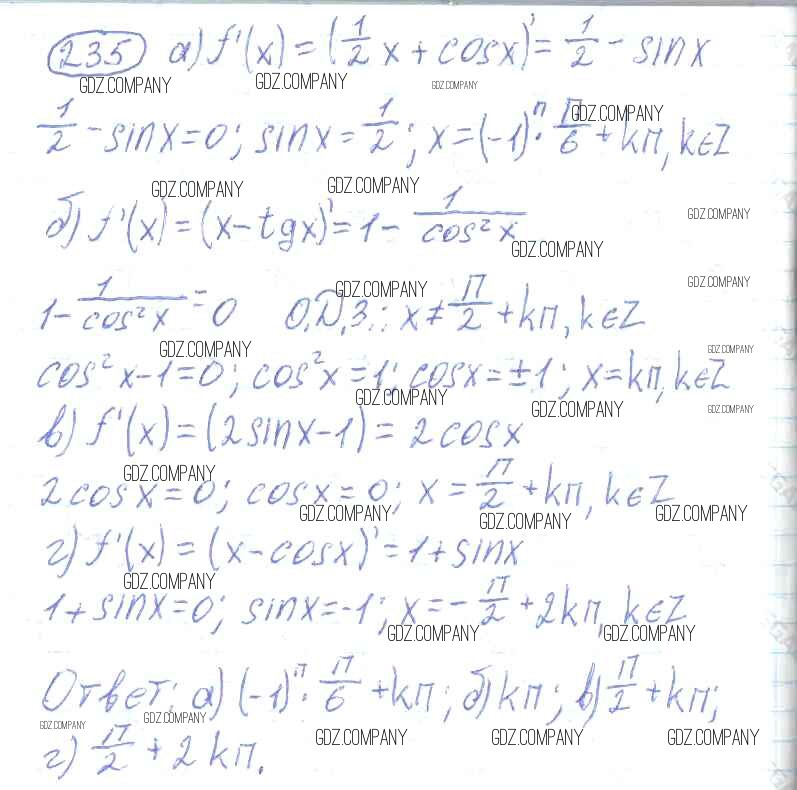 235 а) f'(x) = (1/2 x + cosx)' = 1/2 - sinx
GDZ.COMPANY GDZ.COMPANY GDZ.COMPANY
1/2 - sinx = 0; sinx = 1/2; x = (-1)^п · П/6 + kП, k∈Z
GDZ.COMPANY
GDZ.COMPANY GDZ.COMPANY
б) f'(x) = (x - tgx)' = 1 - 1/cos²x
GDZ.COMPANY
GDZ.COMPANY
1 - 1/cos²x = 0 О.Д.З.: x ≠ П/2 + kП, k∈Z
GDZ.COMPANY GDZ.COMPANY
GDZ.COMPANY GDZ.COMPANY
cos²x - 1 = 0; cos²x = 1; cosx = ±1; x = kП, k∈Z
GDZ.COMPANY GDZ.COMPANY GDZ.COMPANY
в) f'(x) = (2sinx - 1) = 2cosx
GDZ.COMPANY
2cosx = 0; cosx = 0; x = П/2 + kП, k∈Z
GDZ.COMPANY GDZ.COMPANY GDZ.COMPANY
г) f'(x) = (x - cosx)' = 1 + sinx
GDZ.COMPANY
1 + sinx = 0; sinx = -1; x = - П/2 + 2kП, k∈Z
GDZ.COMPANY GDZ.COMPANY
Ответ: а) (-1)^п · П/6 + kП; б) kП; в) П/2 + kП;
GDZ.COMPANY GDZ.COMPANY
г) П/2 + 2kП.
GDZ.COMPANY GDZ.COMPANY GDZ.COMPANY